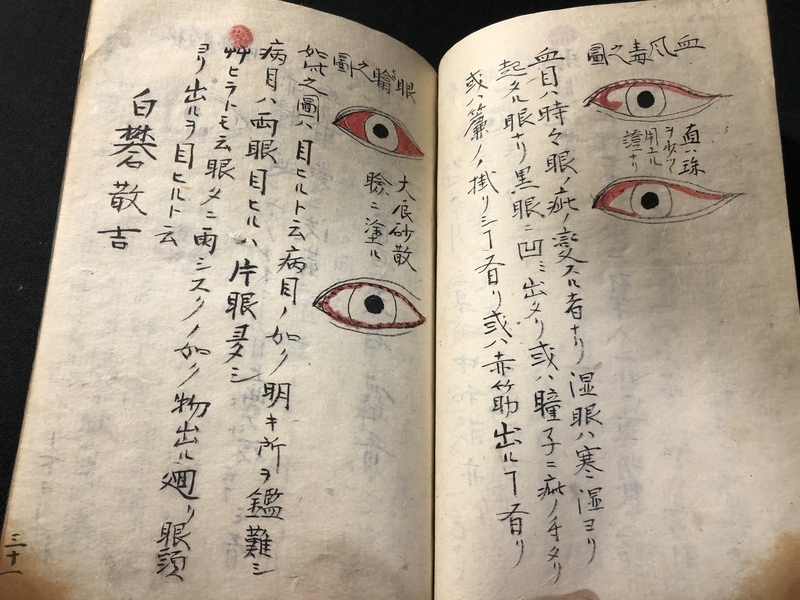 血風毒之圖
真珠
ヲ少シツヽ
用エル
證ナリ
血目ハ時々眼ノ疵ノ変スル者ナリ湿眼ハ寒湿ヨリ
起タル眼ナリ黒眼ニ凹ミ出タリ或ハ瞳子ニ疵ノ手タリ
或ハ簾ノ掛リシヿ有リ或ハ赤筋出ルヿ有リ
眼瞼之圖
大辰砂散
瞼ニ塗ル
如此之圖ハ目ヒルト云病目ノ如ク明キ所ヲ鑑難シ
病目ハ両眼目ヒルハ片眼多シ
ヒラトモ云眼タニ雨シスクノ如ク物出ル廻リ眼頭
ヨリ出ルヲ目ヒルト云
白礬散吉
三十一